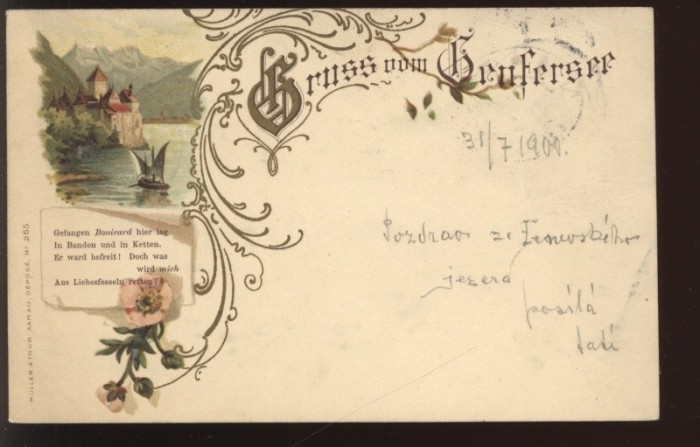 Gruss vom Genfersee
31/7 1900.
Gefangen Bonivard hier lag
In Banden und in Ketten.
Er ward befreit! Doch was
wird mich
Aus Liebesfesseln retten?!
Pozdrav ze Ženevského
jezera
posílá
tati
MÜLLER & TRÜB, AARAU, DÉPOSÉ, Nº 265